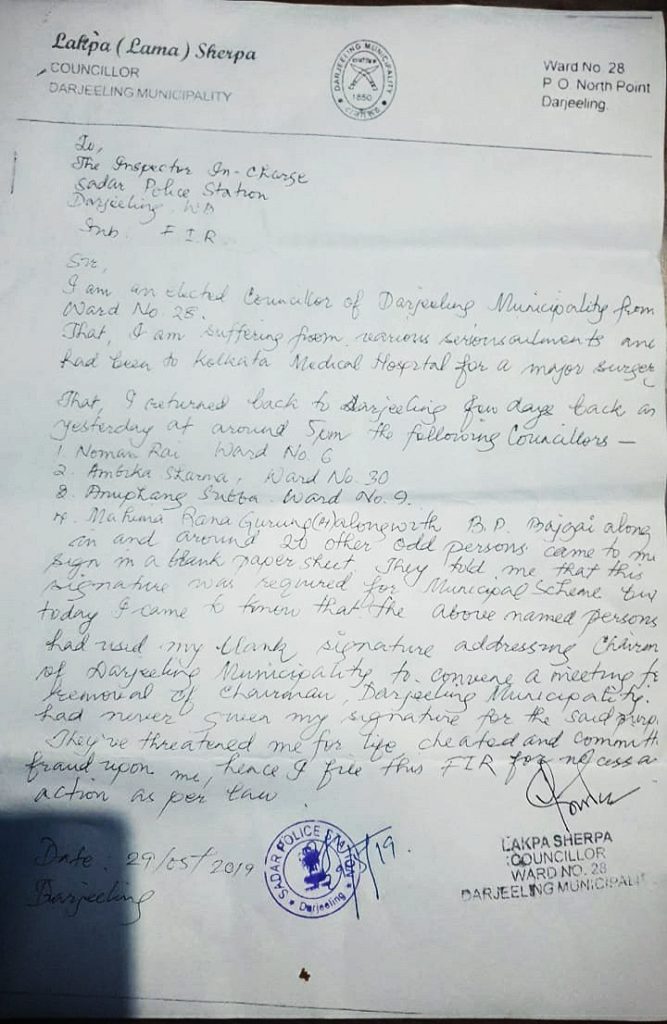 Lakpa (Lama) Sherpa
COUNCILLOR
DARJEELING MUNICIPALITY
DARJEELING MUNICIPALITY
1850
Ward No. 28
P. O. North Point
Darjeeling.
To,
The Inspector In-Charge
Sadar Police Station
Darjeeling. WB
Sub. F I R
Sir,
I am an elected Councillor of Darjeeling Municipality from
Ward No. 28.
That, I am suffering from various serious ailments and
had been to Kolkata Medical Hospital for a major surger
That, I returned back to Darjeeling few days back an
yesterday at around 5pm the following Councillors —
1. Noman Rai Ward No. 6
2. Ambika Sharma, Ward No. 30
3. Anuptang Subba. Ward No. 9.
4. Mahima Rana Gurung alongwith B.P. Bajgai along
in and around 20 other odd persons came to me
sign in a blank paper sheet. They told me that this
signature was required for Municipal Scheme but
today I came to know that the above named persons
had used my blank signature addressing Chairm
of Darjeeling Municipality to convene a meeting fo
removal of Chairman, Darjeeling Municipality.
had never given my signature for the said purp
They've threatened me for life, cheated and committ
fraud upon me, hence I file this FIR for necessa
action as per law.
LAKPA SHERPA
COUNCILLOR
WARD NO. 28
DARJEELING MUNICIPALIT
Date: 29/05/2019
Darjeeling
SADAR POLICE STATION
Darjeeling